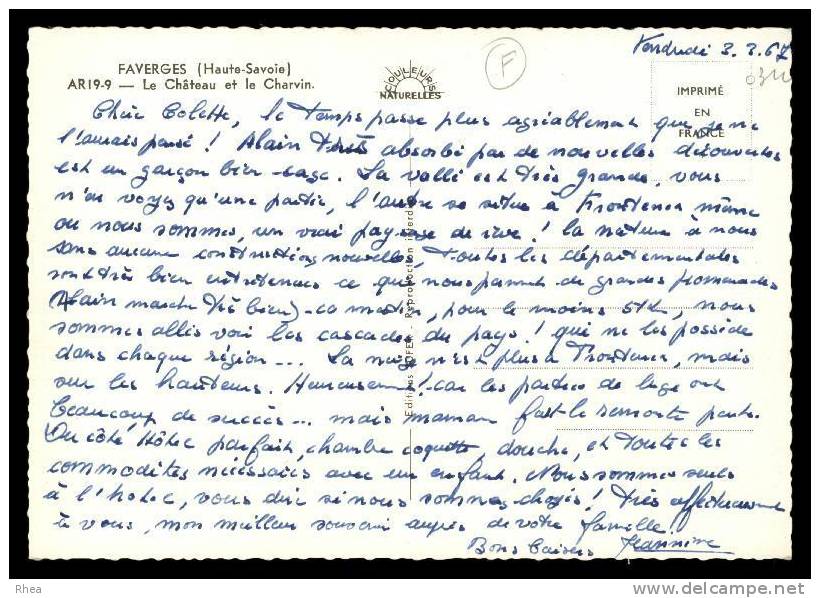 Vendredi 3.3.67
FAVERGES (Haute-Savoie)
AR19-9 — Le Château et le Charvin.
COULEURS
NATURELLES
F
IMPRIMÉ
EN
FRANCE
Chère Colette, le temps passe plus agréablement que je ne
l'aurais pensé ! Alain très absorbé par de nouvelles découvertes
est un garçon bien sage. La vallé est très grande, vous
n'en voyez qu'une partie, l'autre se situe à Frontenex même
ou nous sommes, un vrai paysage de rêve ! la nature à nous
sans aucune constructions nouvelles, toutes les départementales
sont très bien entretenues ce qui nous permet de grandes promenades
(Alain marche très bien) - ce matin, pour le moins 5 K, nous
sommes allés voir les cascades du pays ! qui ne les possède
dans chaque région ... La neige n'est plus à Frontenex, mais
sur les hauteurs. Heureusement ! car les parties de luge ont
beaucoup de succès ... mais maman fait le remonte pente.
Du côté Hôtel parfait, chambre coquette, douche, et toutes les
commodités nécessaires avec un enfant. Nous sommes seuls
à l'hôtel, vous dire si nous sommes choyés ! très affectueusement
à vous, mon meilleur souvenir auprès de votre famille !
Bons baisers Jeannine
Editions SOFER - Reproduction interdite
Rhea
www.delcampe.net